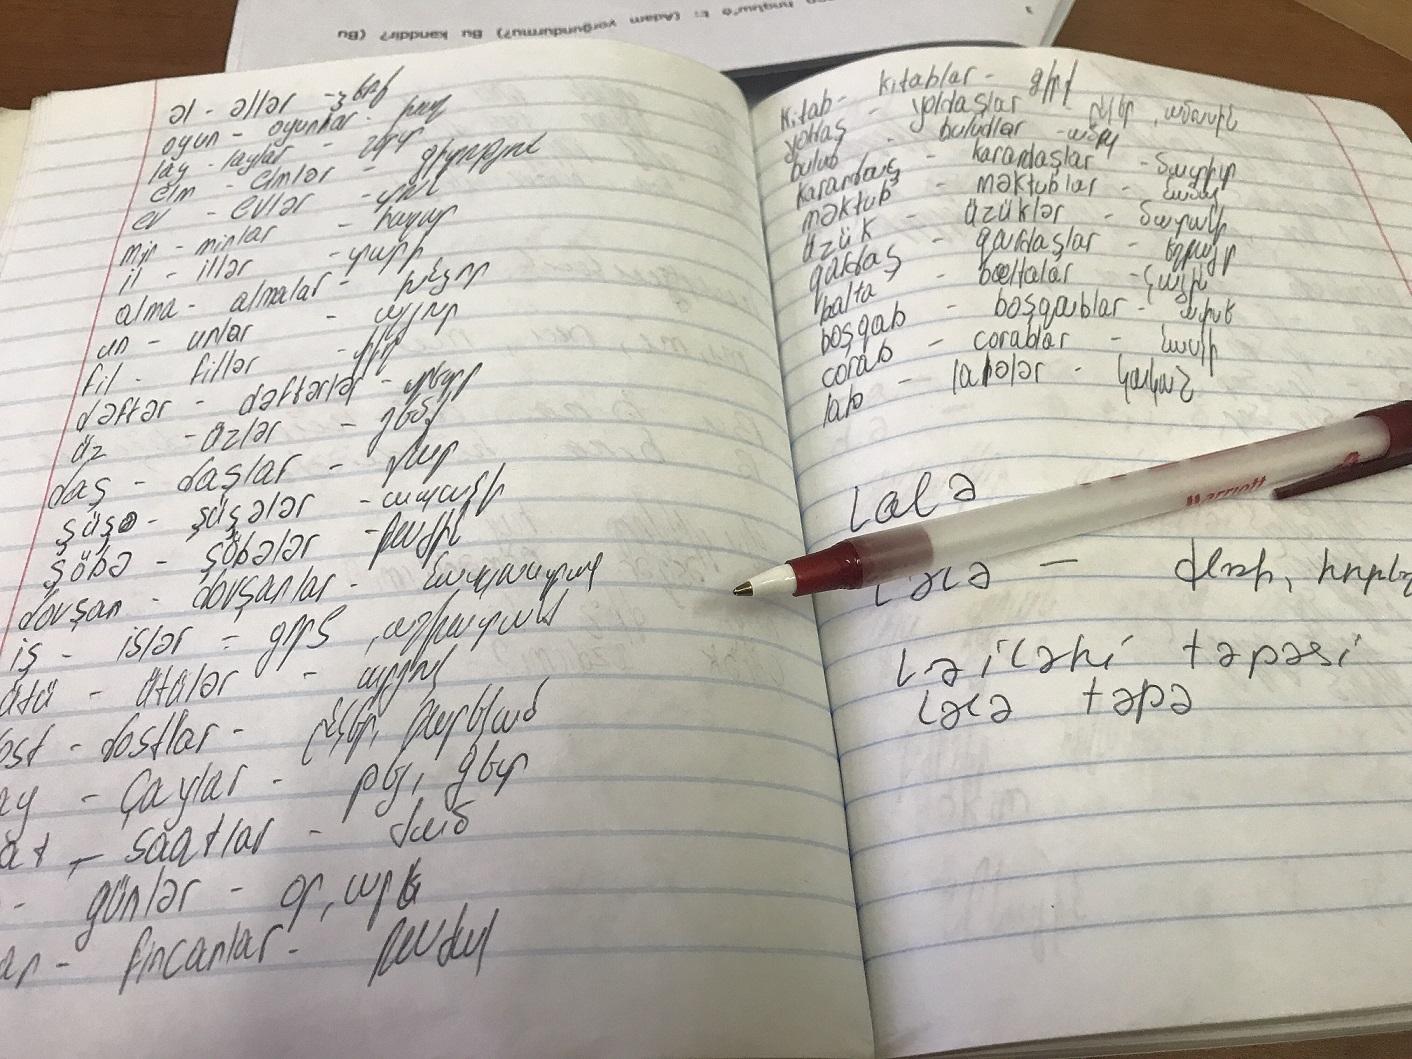 əl - əllər - ձեռք
oyun - oyunlar - խաղ
lay - laylar - շերտ
elm - elmlər - գիտություն
ev - evlər - տուն
min - minlar - հազար
il - illər - տարի
alma - almalar - խնձոր
un - unlar - ալյուր
fil - fillər - փիղ
dəftər - dəftərlər - տետր
üz - üzlər - դեմք
daş - daşlar - քար
şüşə - şüşələr - ապակի
şöbə - şöbələr - բաժին
dovşan - dovşanlar - նապաստակ
iş - işlər = գործ, աշխատանք
ütü - ütülər - արդուկ
ost - dostlar - ընկեր, բարեկամ
ay - çaylar - թեյ, գետ
at - saatlar - ժամ
- günlər - օր, արև
an - fincanlar - բաժակ
Kitab - kitablar - գիրք
yoldaş - yoldaşlar - ընկեր, ամուսին
bulud - buludlar - ամպ
karandaş - karandaşlar - մատիտ
məktub - məktublar - նամակ
üzük - üzüklər - մատանի
qardaş - qardaşlar - եղբայր
balta - baltalar - կացին
boşqab - boşqablar - ափսե
corab - corablar - գուլպա
lalə - lalələr - կակաչ
Lalə
Lələ -
Ləiləhi təpəsi
Lələ təpə
Marriott
(Adam yorğundurmu?) Bu kənddir? (Bu